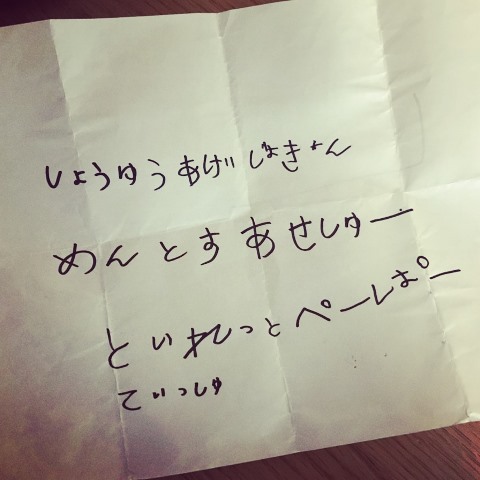 しょうゆうあげじょきん
めんとすあせしゅー
といれっとペーしぱー
てぃっしゅ